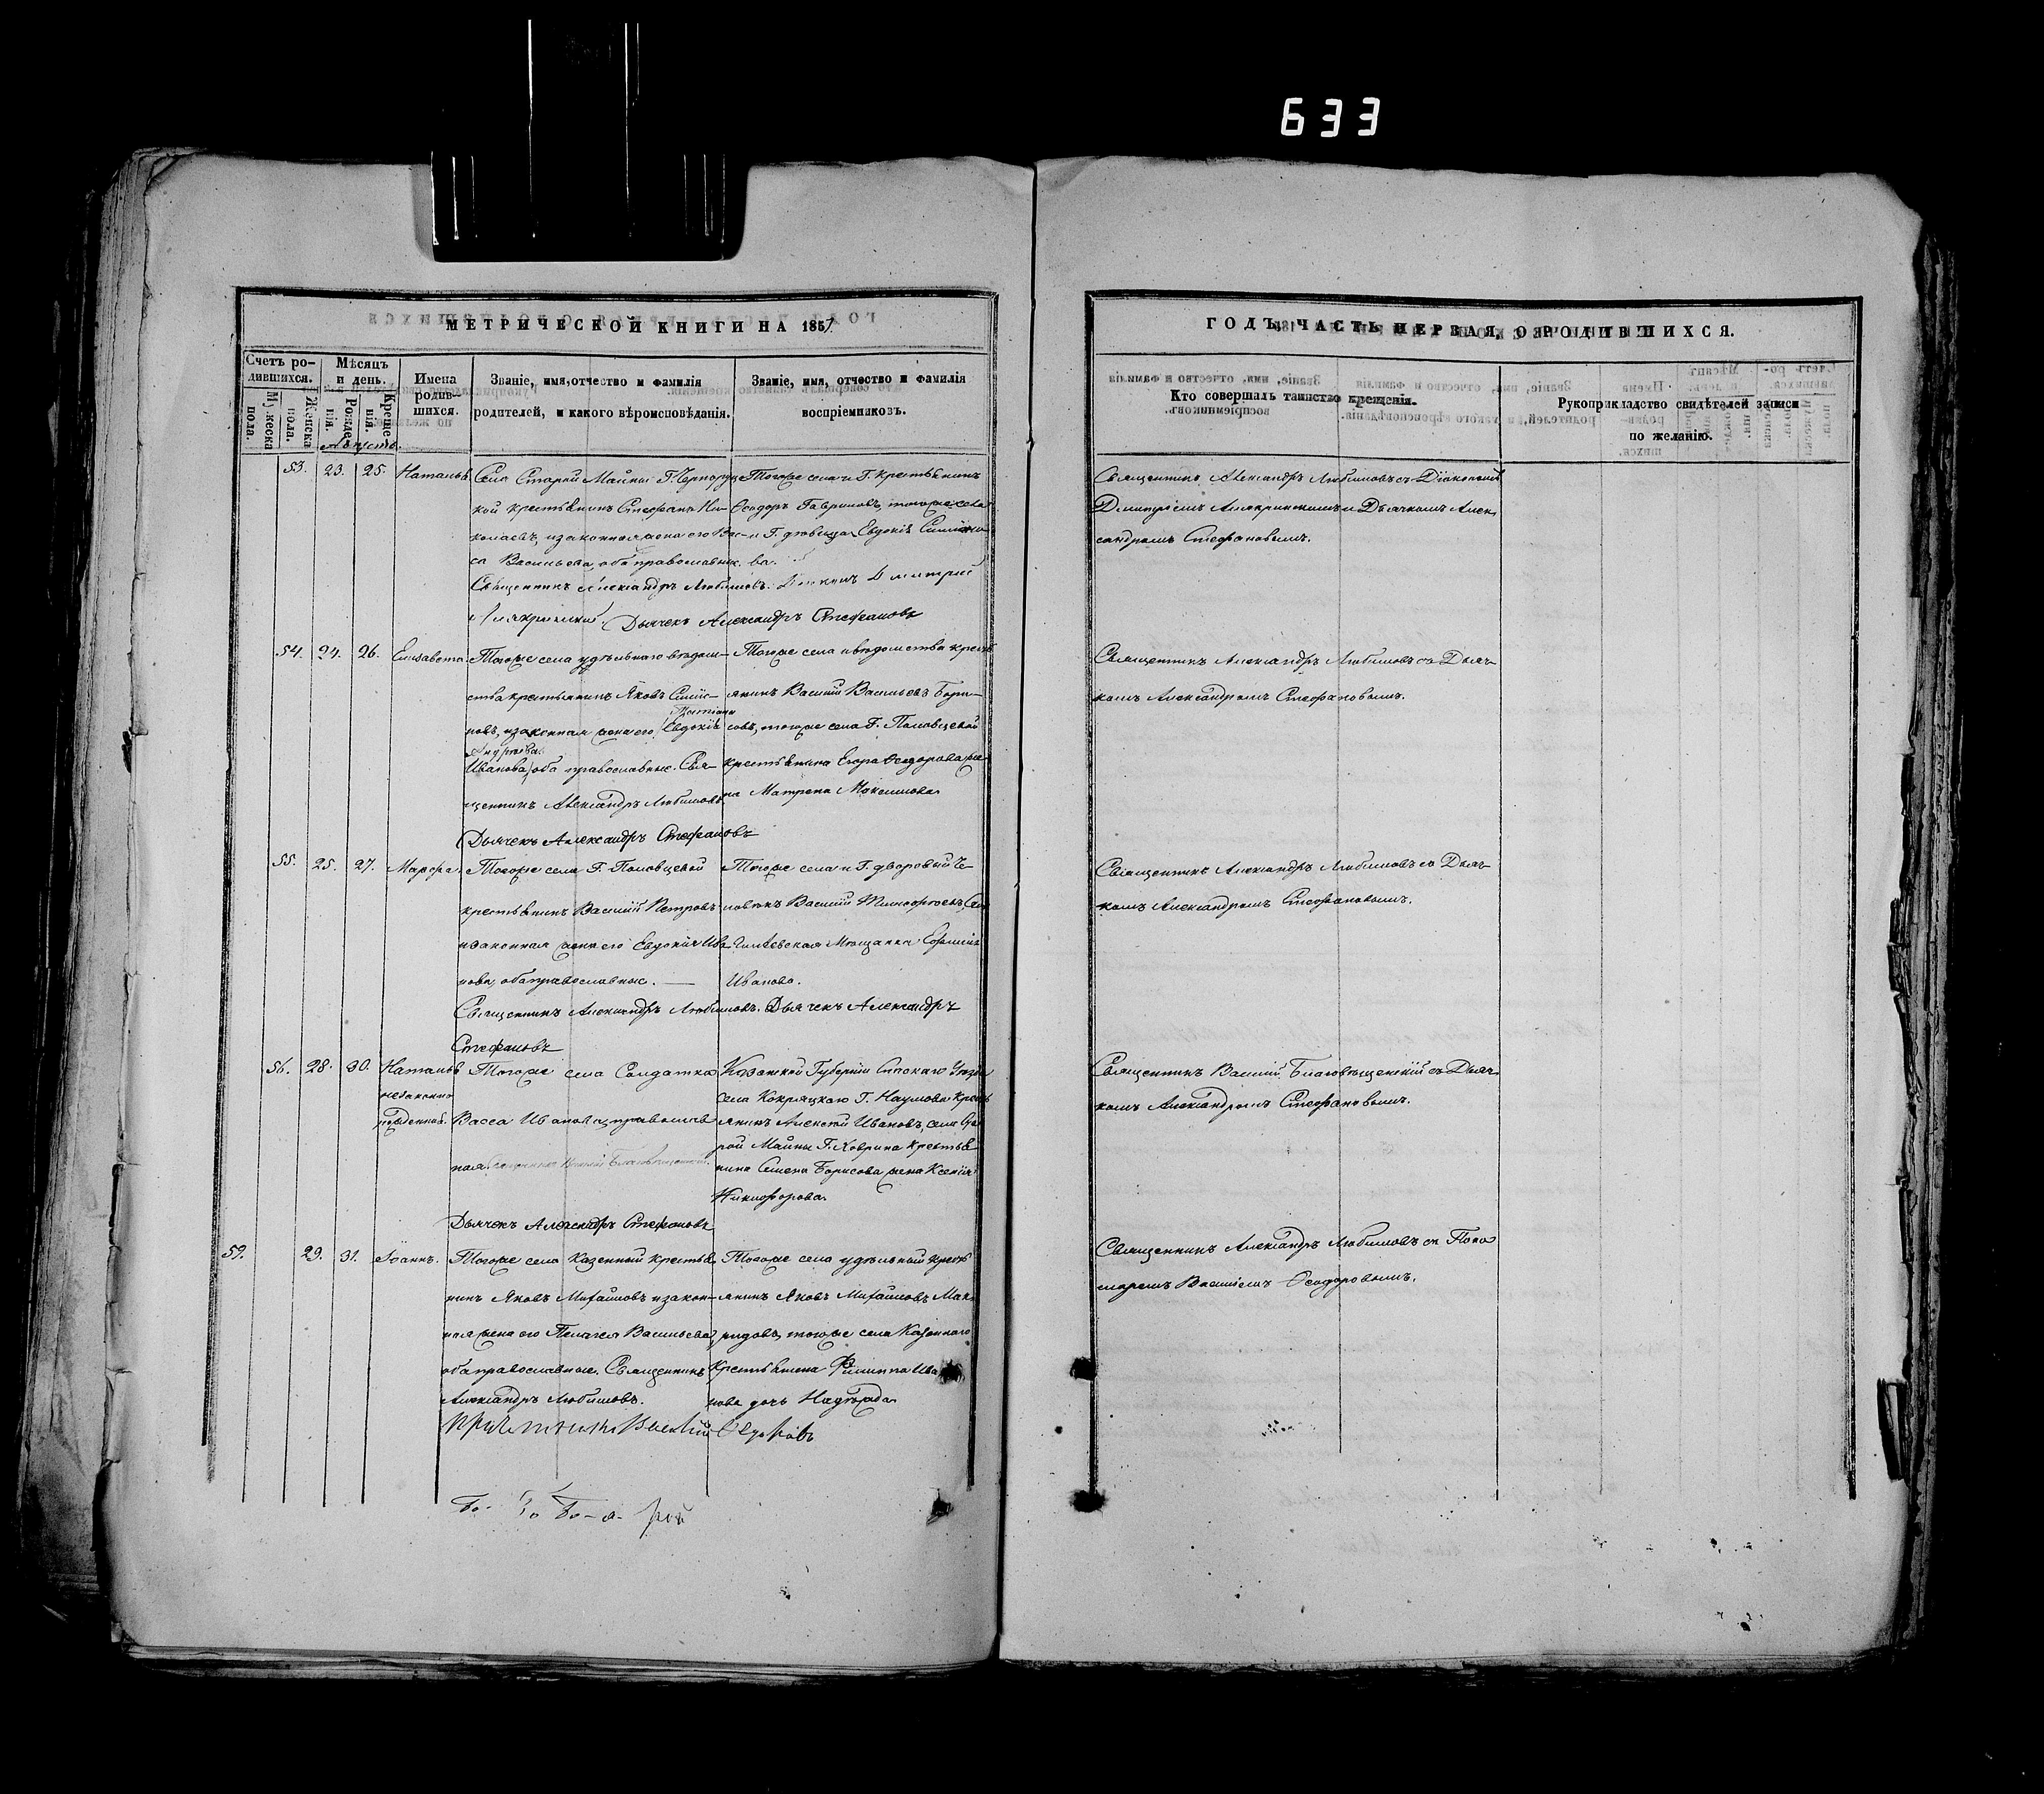 633
МЕТРИЧЕСКОЙ КНИГИ НА 1857
Счетъ ро-
дившихся.
Мужеска
пола.
Женска
пола.
Мѣсяцъ
и день.
Рожде-
нія.
Креще-
нія.
Имена
родив-
шихся.
Званіе, имя, отчество и фамилія
родителей, и какого вѣроисповѣданія.
Званіе, имя, отчество и фамилія
воспріемниковъ.
Августъ.
53. 23. 25. Наталья
Села Старой Майны Г.
кой крестьянинъ Стефанъ Ни-
колаевъ, и законная жена его Вас-
са Васильева, оба православные.
Тогоже села и Г. крестьянинъ
Ѳеодоръ Гавриловъ, тогоже села
и Г. Евдокія
ва.
Священникъ Александръ Любимовъ. Діаконъ Димитрій
Дьячекъ Александръ Стефановъ
54. 24. 26. Елисавета.
Тогоже села удѣльнаго вѣдом-
ства крестьянинъ Яковъ
новъ, и законная жена его (Евдокія
Иванова) оба православные. Свя-
щенникъ Александръ Любимовъ
Дьячекъ Александръ Стефановъ
Тогоже села и вѣдомства кресть
янинъ Василій Васильевъ Бори-
совъ, тогоже села Г. Половцевой
крестьянина Егора Ѳеодорова же
на Матрена Максимова
55. 25. 27. Марѳа.
Тогоже села Г. Половцевой
крестьянинъ Василій Петровъ
и законная жена его Евдокія Ива
нова, оба православные.
Тогоже села и Г. дворовый че-
ловѣкъ Василій Тимофѣевъ,
Мѣщанка
Иванова.
Священникъ Александръ Любимовъ. Дьячекъ Александръ
Стефановъ
56. 28. 30. Наталья
незаконно
рожденная.
Тогоже села Солдатка
Васса Иванова, православ
ная. Священникъ Василій Благовѣщенскій.
Дьячекъ Александръ Стефановъ
Казанской Губерніи Спаскаго Уѣзда
села Кокряцкаго Г. Наумова кресть
янинъ Алексѣй Ивановъ, села Ста
рой Майны Г. Ховрина крестья
нина Семена Борисова жена Ксенія
Никифорова
59. 29. 31. Іоаннъ.
Тогоже села казенный крестья
нинъ Яковъ Михайловъ и закон-
ная жена его Пелагея Васильева,
оба православные. Священникъ
Александръ Любимовъ.
Тогоже села удѣльный кресть
янинъ Яковъ Михайловъ Мак
ридовъ, тогоже села казеннаго
крестьянина Филиппа Ива
нова дочь Надѣжда
Василій
ГОДЪ, ЧАСТЬ ПЕРВАЯ, О РОДИВШИХСЯ.
Кто совершалъ таинство крещенія.
Рукоприкладство свидѣтелей записи
по желанію.
Священникъ Александръ Любимовъ съ Діакономъ
Димитріемъ и Дьячкомъ Алек
сандромъ Стефановымъ.
Священникъ Александръ Любимовъ съ Дьяч-
комъ Александромъ Стефановымъ.
Священникъ Александръ Любимовъ съ Дьяч-
комъ Александромъ Стефановымъ.
Священникъ Василій Благовѣщенскій съ Дьяч
комъ Александромъ Стефановымъ.
Священникъ Александръ Любимовъ съ Поно
маремъ Василіемъ Ѳеодоровымъ.